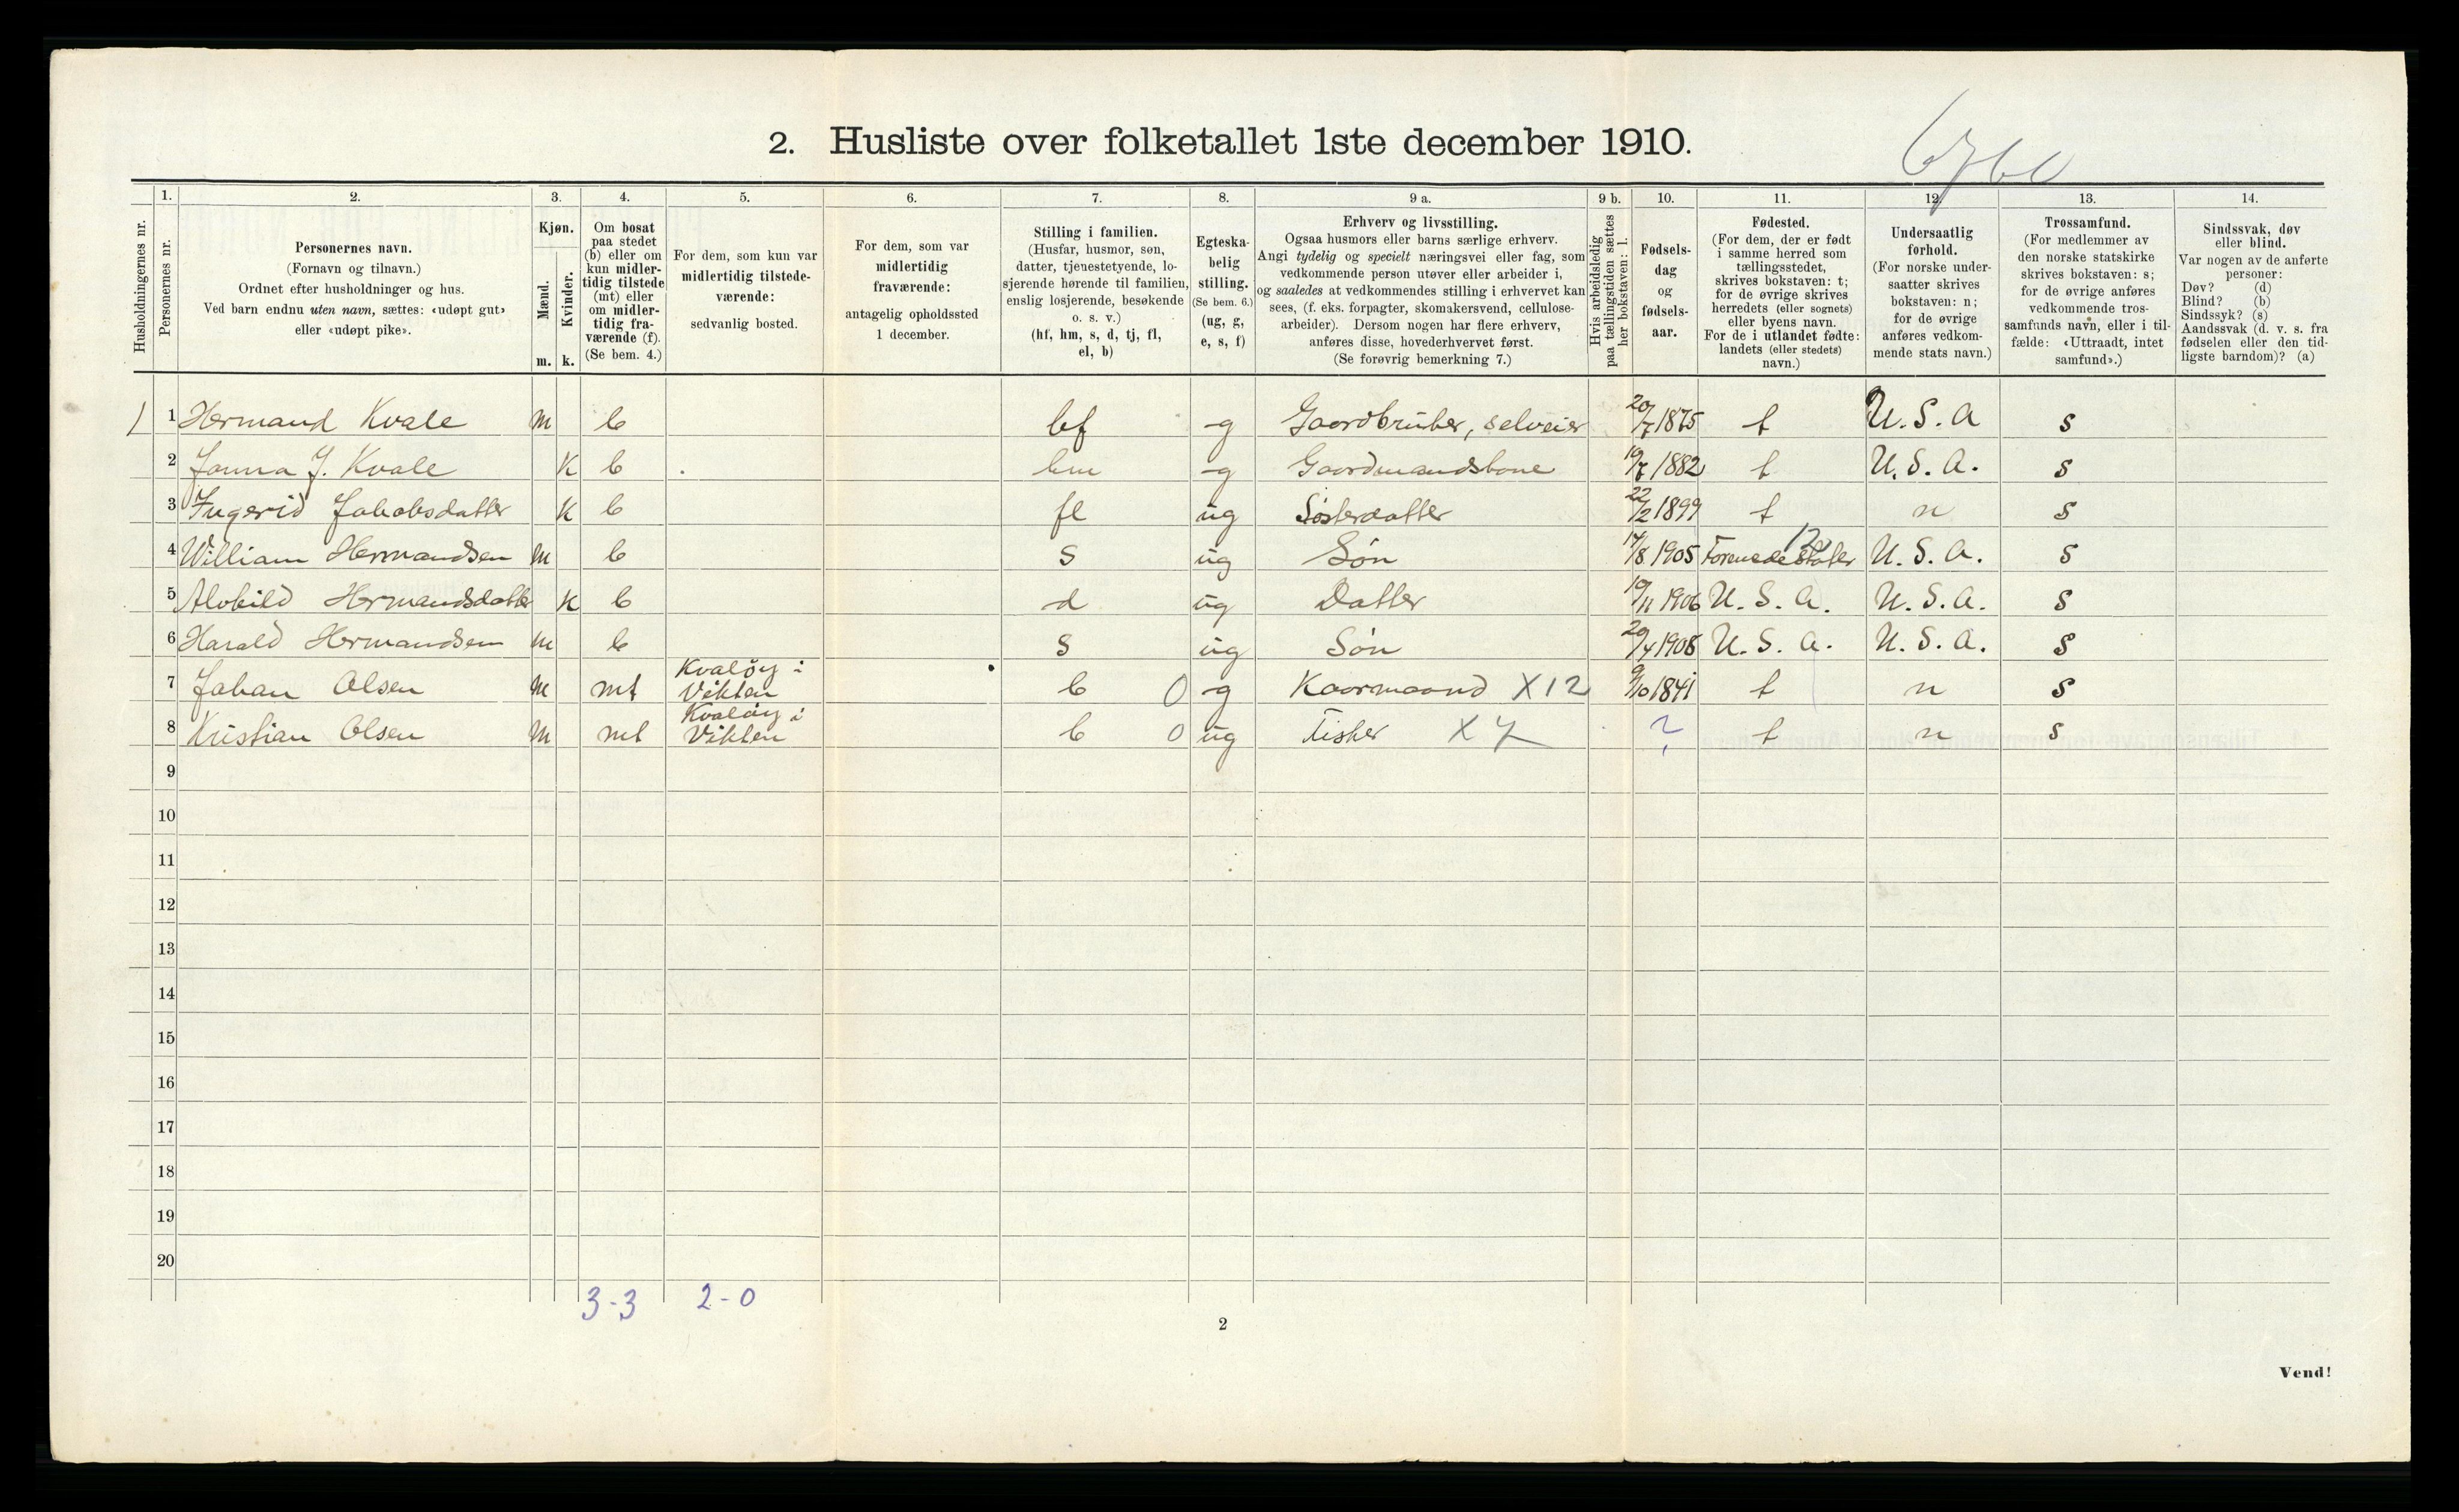 2. Husliste over folketallet 1ste december 1910.
6760
Husholdningernes nr.
1.
Personernes nr.
2.
Personernes navn.
(Fornavn og tilnavn.)
Ordnet efter husholdninger og hus.
Ved barn endnu uten navn, sættes: «udøpt gut»
eller «udøpt pike».
3.
Kjøn.
Mænd.
Kvinder.
m. k.
4.
Om bosat
paa stedet
(b) eller om
kun midler-
tidig tilstede
(mt) eller
om midler-
tidig fra-
værende (f).
(Se bem. 4.)
5.
For dem, som kun var
midlertidig tilstede-
værende:
sedvanlig bosted.
6.
For dem, som var
midlertidig
fraværende:
antagelig opholdssted
1 december.
7.
Stilling i familien.
(Husfar, husmor, søn,
datter, tjenestetyende, lo-
sjerende hørende til familien,
enslig losjerende, besøkende
o. s. v.)
(hf, hm, s, d, tj, fl,
el, b)
8.
Egteska-
belig
stilling.
(Se bem. 6.)
(ug, g,
e, s, f)
9 a.
Erhverv og livsstilling.
Ogsaa husmors eller barns særlige erhverv.
Angi tydelig og specielt næringsvei eller fag, som
vedkommende person utøver eller arbeider i,
og saaledes at vedkommendes stilling i erhvervet kan
sees, (f. eks. forpagter, skomakersvend, cellulose-
arbeider). Dersom nogen har flere erhverv,
anføres disse, hovederhvervet først.
(Se forøvrig bemerkning 7.)
9 b.
Hvis arbeidsledig
paa tællingstiden sættes
her bokstaven: l.
10.
Fødsels-
dag
og
fødsels-
aar.
11.
Fødested.
(For dem, der er født
i samme herred som
tællingsstedet,
skrives bokstaven: t;
for de øvrige skrives
herredets (eller sognets)
eller byens navn.
For de i utlandet fødte:
landets (eller stedets)
navn.)
12.
Undersaatlig
forhold.
(For norske under-
saatter skrives
bokstaven: n;
for de øvrige
anføres vedkom-
mende stats navn.)
13.
Trossamfund.
(For medlemmer av
den norske statskirke
skrives bokstaven: s;
for de øvrige anføres
vedkommende tros-
samfunds navn, eller i til-
fælde: «Uttraadt, intet
samfund».)
14.
Sindssvak, døv
eller blind.
Var nogen av de anførte
personer:
Døv? (d)
Blind? (b)
Sindssyk? (s)
Aandssvak (d. v. s. fra
fødselen eller den tid-
ligste barndom)? (a)
1 1 Hermand Kvale m b hf g Gaardbruker, selveier 20/7 1875 t U.S.A s
2 Janna J. Kvale K b hm g Gaardmandskone 19/7 1882 t U.S.A. s
3 Ingerid Jakobsdatter K b fl ug Søsterdatter 22/2 1899 t n s
4 William Hermandsen m b s ug Søn 17/8 1905 Forenede stater 12 U.S.A. s
5 Alvhild Hermandsdatter K b d ug Datter 19/11 1906 U.S.A. U.S.A. s
6 Harald Hermandsen m b s ug Søn 29/4 1908 U.S.A. U.S.A. s
7 Johan Olsen m mt Kvaløy i Vikten b 0 g Kaarmaand X12 9/10 1841 t n s
8 Kristian Olsen m mt Kvaløy i Vikten b 0 ug Fisker X7 ? t n s
9
10
11
12
13
14
15
16
17
18
19
20
3-3 2-0
2
Vend!